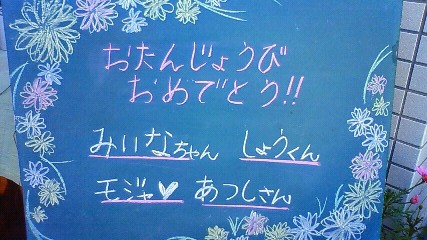 おたんじょうび
おめでとう!!
みいなちゃん しょうくん
モジャ♥ あつしさん